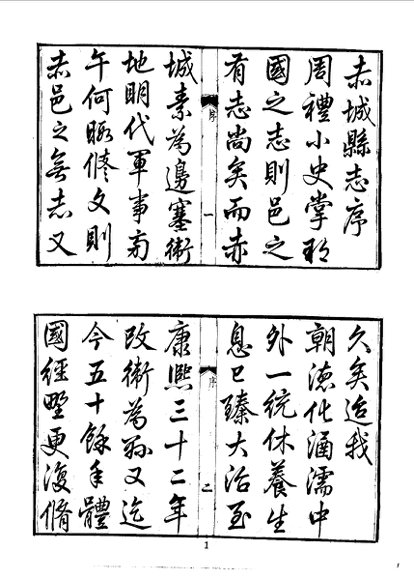 赤城縣志序
周禮小史掌邦
國之志則邑之
有志尚矣而赤
序
一
城素為邊塞衛
地明代軍事旁
午何暇修文則
赤邑之無志又
久矣迨我
朝德化涵濡中
外一統休養生
息已臻大治至
序
二
康熙三十二年
改衛為縣又迄
今五十餘年體
國經野更復脩
1